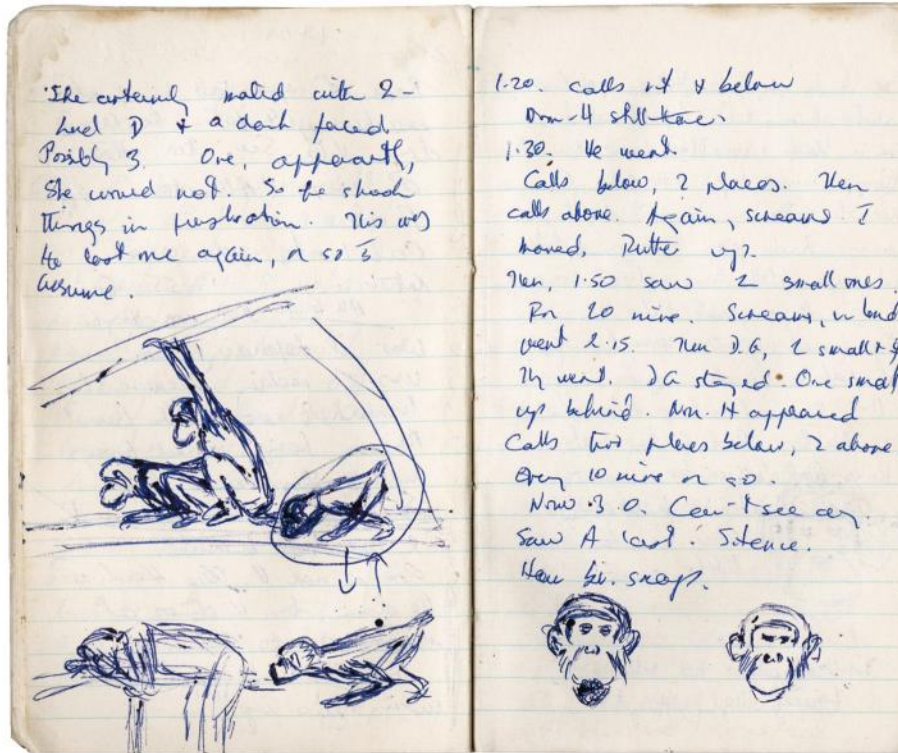 She certainly mated with 2 -
and D + a dark faced.
Possibly 3. One, apparently,
She would not. So he shook
things in frustration. This was
He lost me again, or so I
assume.
1.20. Calls rt & below
still there.
1.30. He went.
Calls below, 2 places. Then
calls above. Again, screams I
moved. up?
Then, 1.50 saw 2 small ones.
For 20 mins. Screams,
went 2.15. Then D.G, 2 small + 
They went. DG stayed. One small
up behind. Non. H appeared
Calls two places below, 2 above
Every 10 mins or so.
Now 3.0. Can't see any.
Saw A last. Silence.
Have bi. snap.